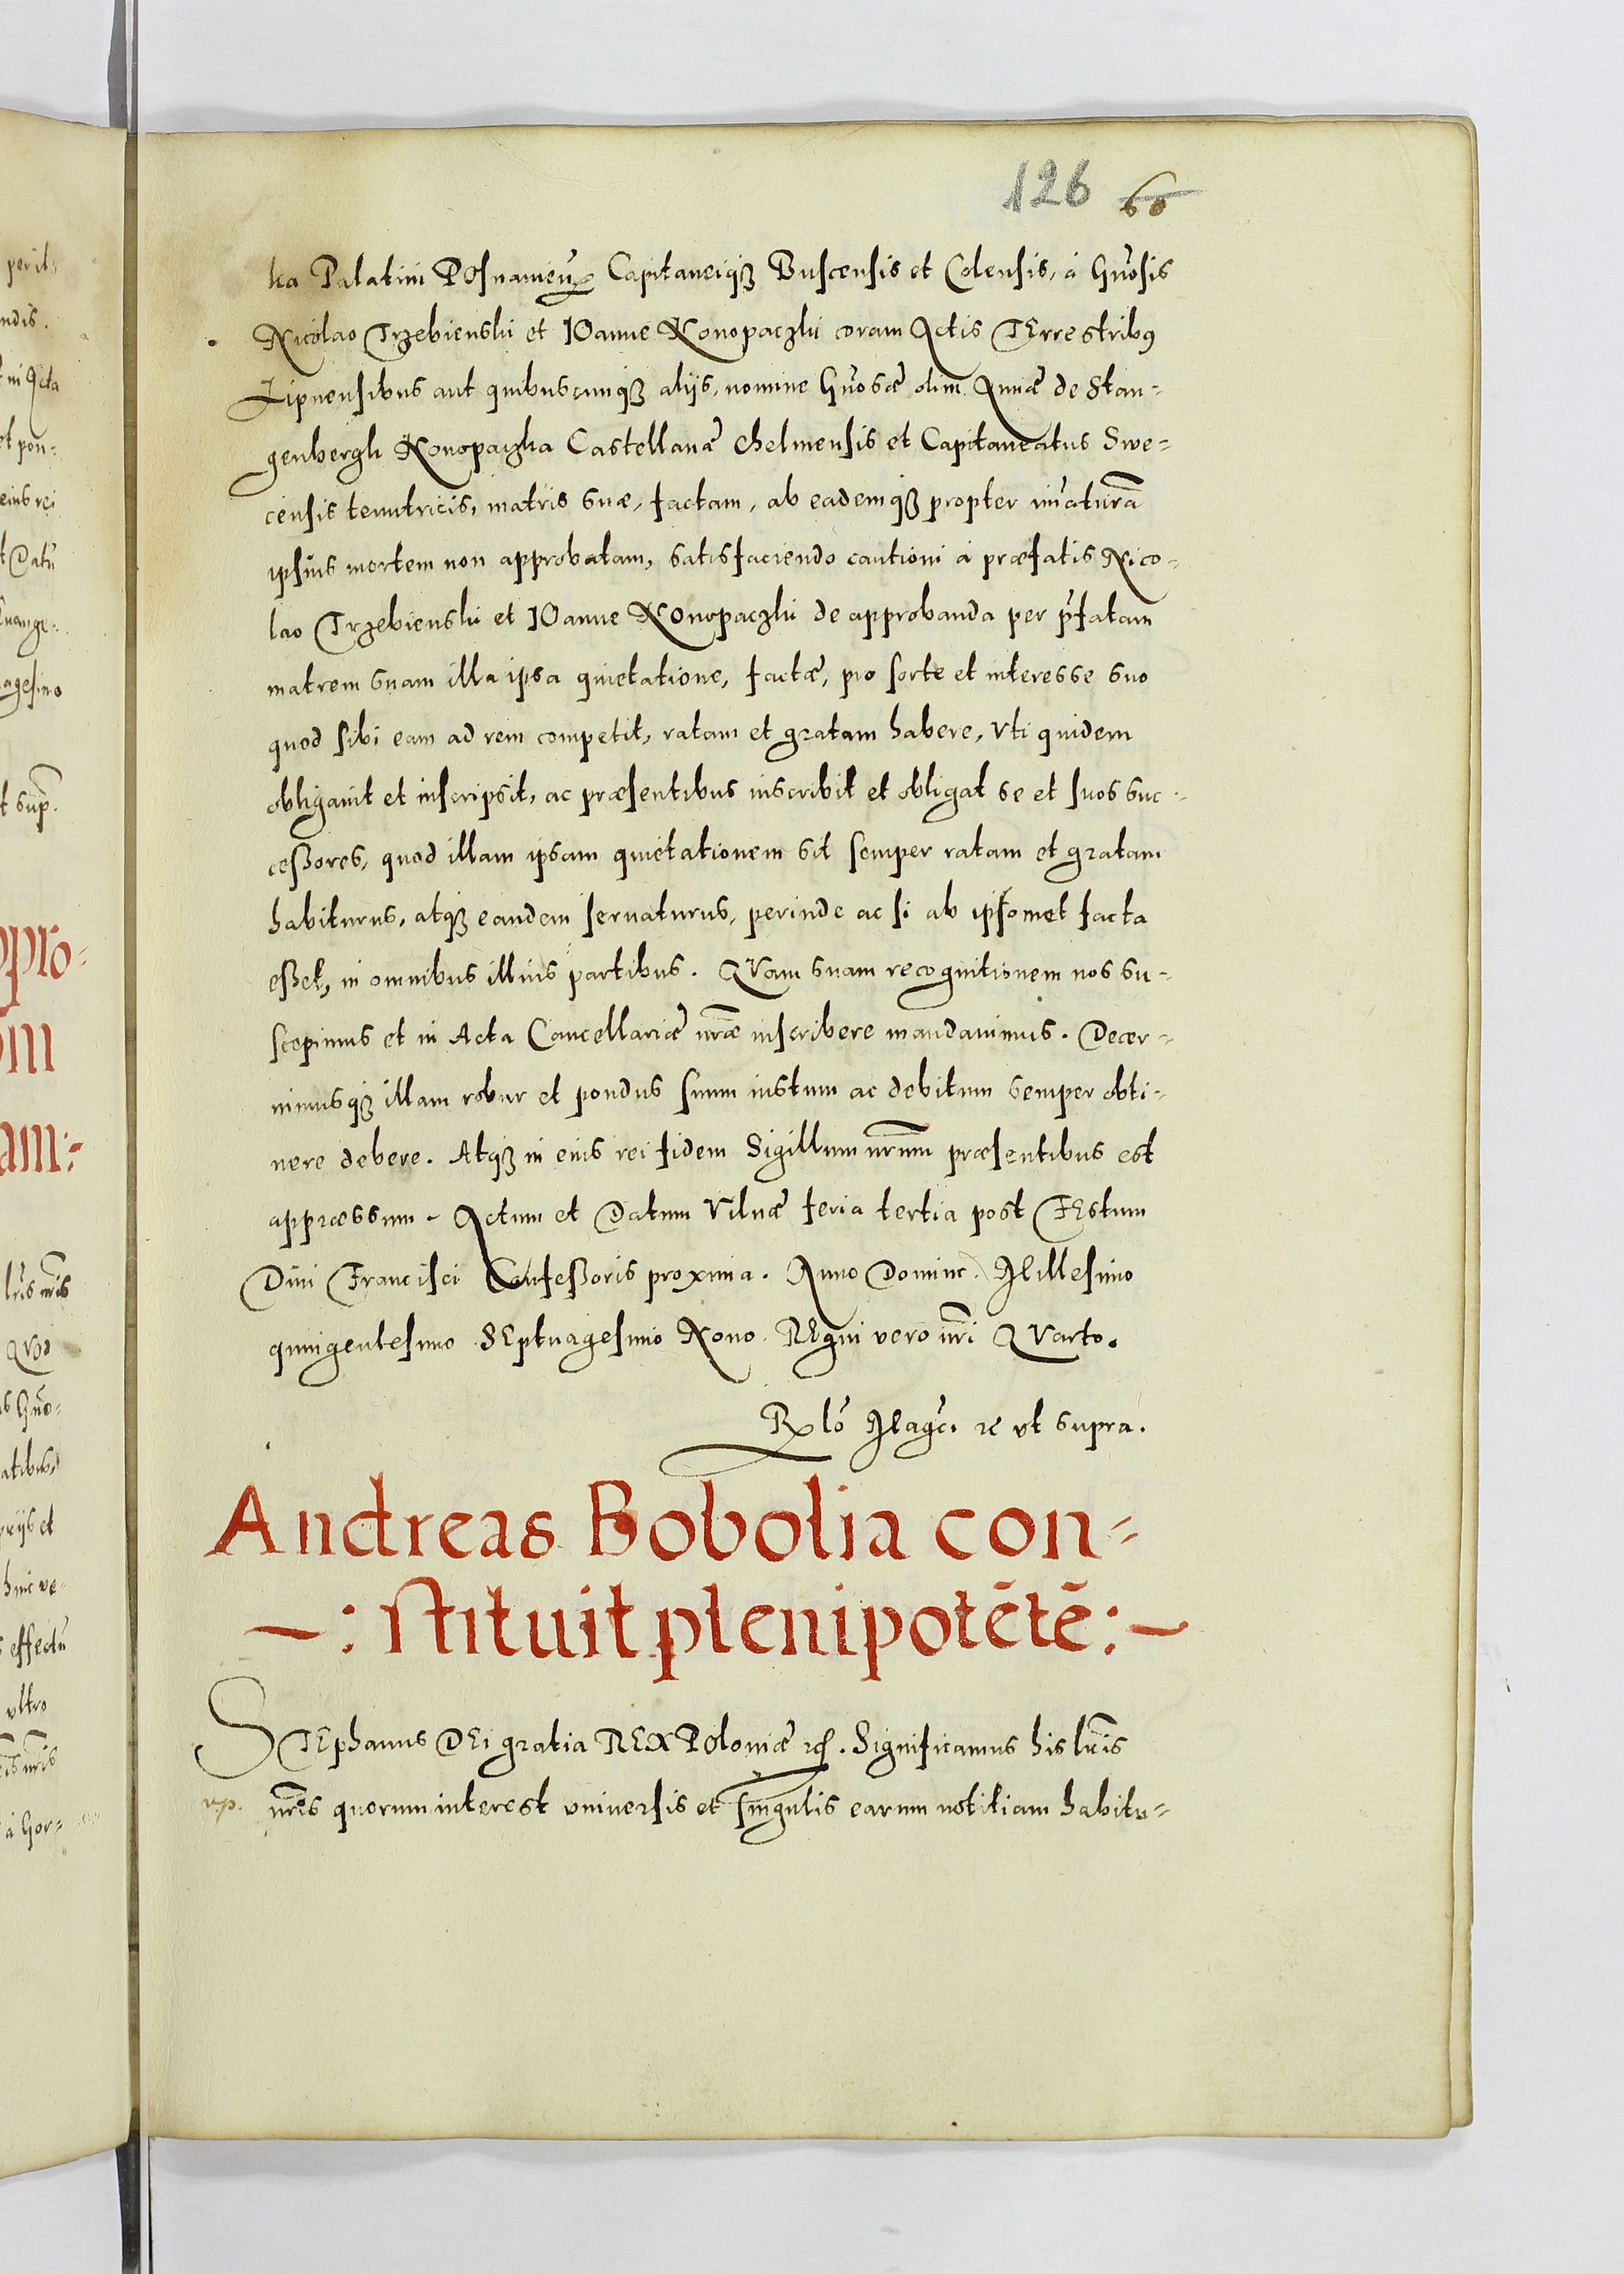 126 66
ka Palatini POsnanieñ Capitaneiqȝ Buscensis et Colensis, á Gñosis
Nicolao Trzebienski et IOanne Konopaczki coram Actis TErrestribus
Lipnensibus aut quibuscunqȝ aliis, nomine Gñosæ olim Annæ de Stan-
genbergk Konopaczka Castellanæ Chelmensis et Capitaneatus Swe-
censis tenutricis, matris suæ, factam, ab eademqȝ propter im̃aturã
ipsius mortem non approbatam, satisfaciendo cautioni á præfatis Nico-
lao Trzebienski et IOanne KOnopaczki de approbanda per p̃fatam
matrem suam illa ipsa quietatione, factæ, pro sorte et interesse suo
quod sibi eam ad rem competit, ratam et gratam habere, Vti quidem
obligauit et inscripsit, ac præsentibus inscribit et obligat se et suos suc-
ceßores, quod illam ipsam quietationem sit semper ratam et gratam
habiturus, atqȝ eandem seruaturus, perinde ac si ab ipsomet facta
eßet, in omnibus illius partibus. QVam suam recognitionem nos su-
scepimus et in Acta Cancellariæ nr̃æ inscribere mandauimus. Decer-
nimusqȝ illam robur et pondus suum iustum ac debitum semper obti-
nere debere. Atqȝ in eius rei fidem Sigillum nr̃um præsentibus est
appræssum. Actum et Datum Vilnæ feria tertia post FEstum
Diui Francisci Confeßoris proxima. Anno Domine. Millesimo
quingentesimo SEptuagesimo Nono. REgni vero nr̃i QVarto.
Rlõ Magc̃i. ꝛc vt supra.
Andreas Bobolia con-
-: stituit plenipotẽtẽ:-
STEphanus DEi gratia REX POloniæ ꝛc. Significamus his lr̃is
vp. nr̃is quorum interest vniuersis et singulis earum notitiam habitu-